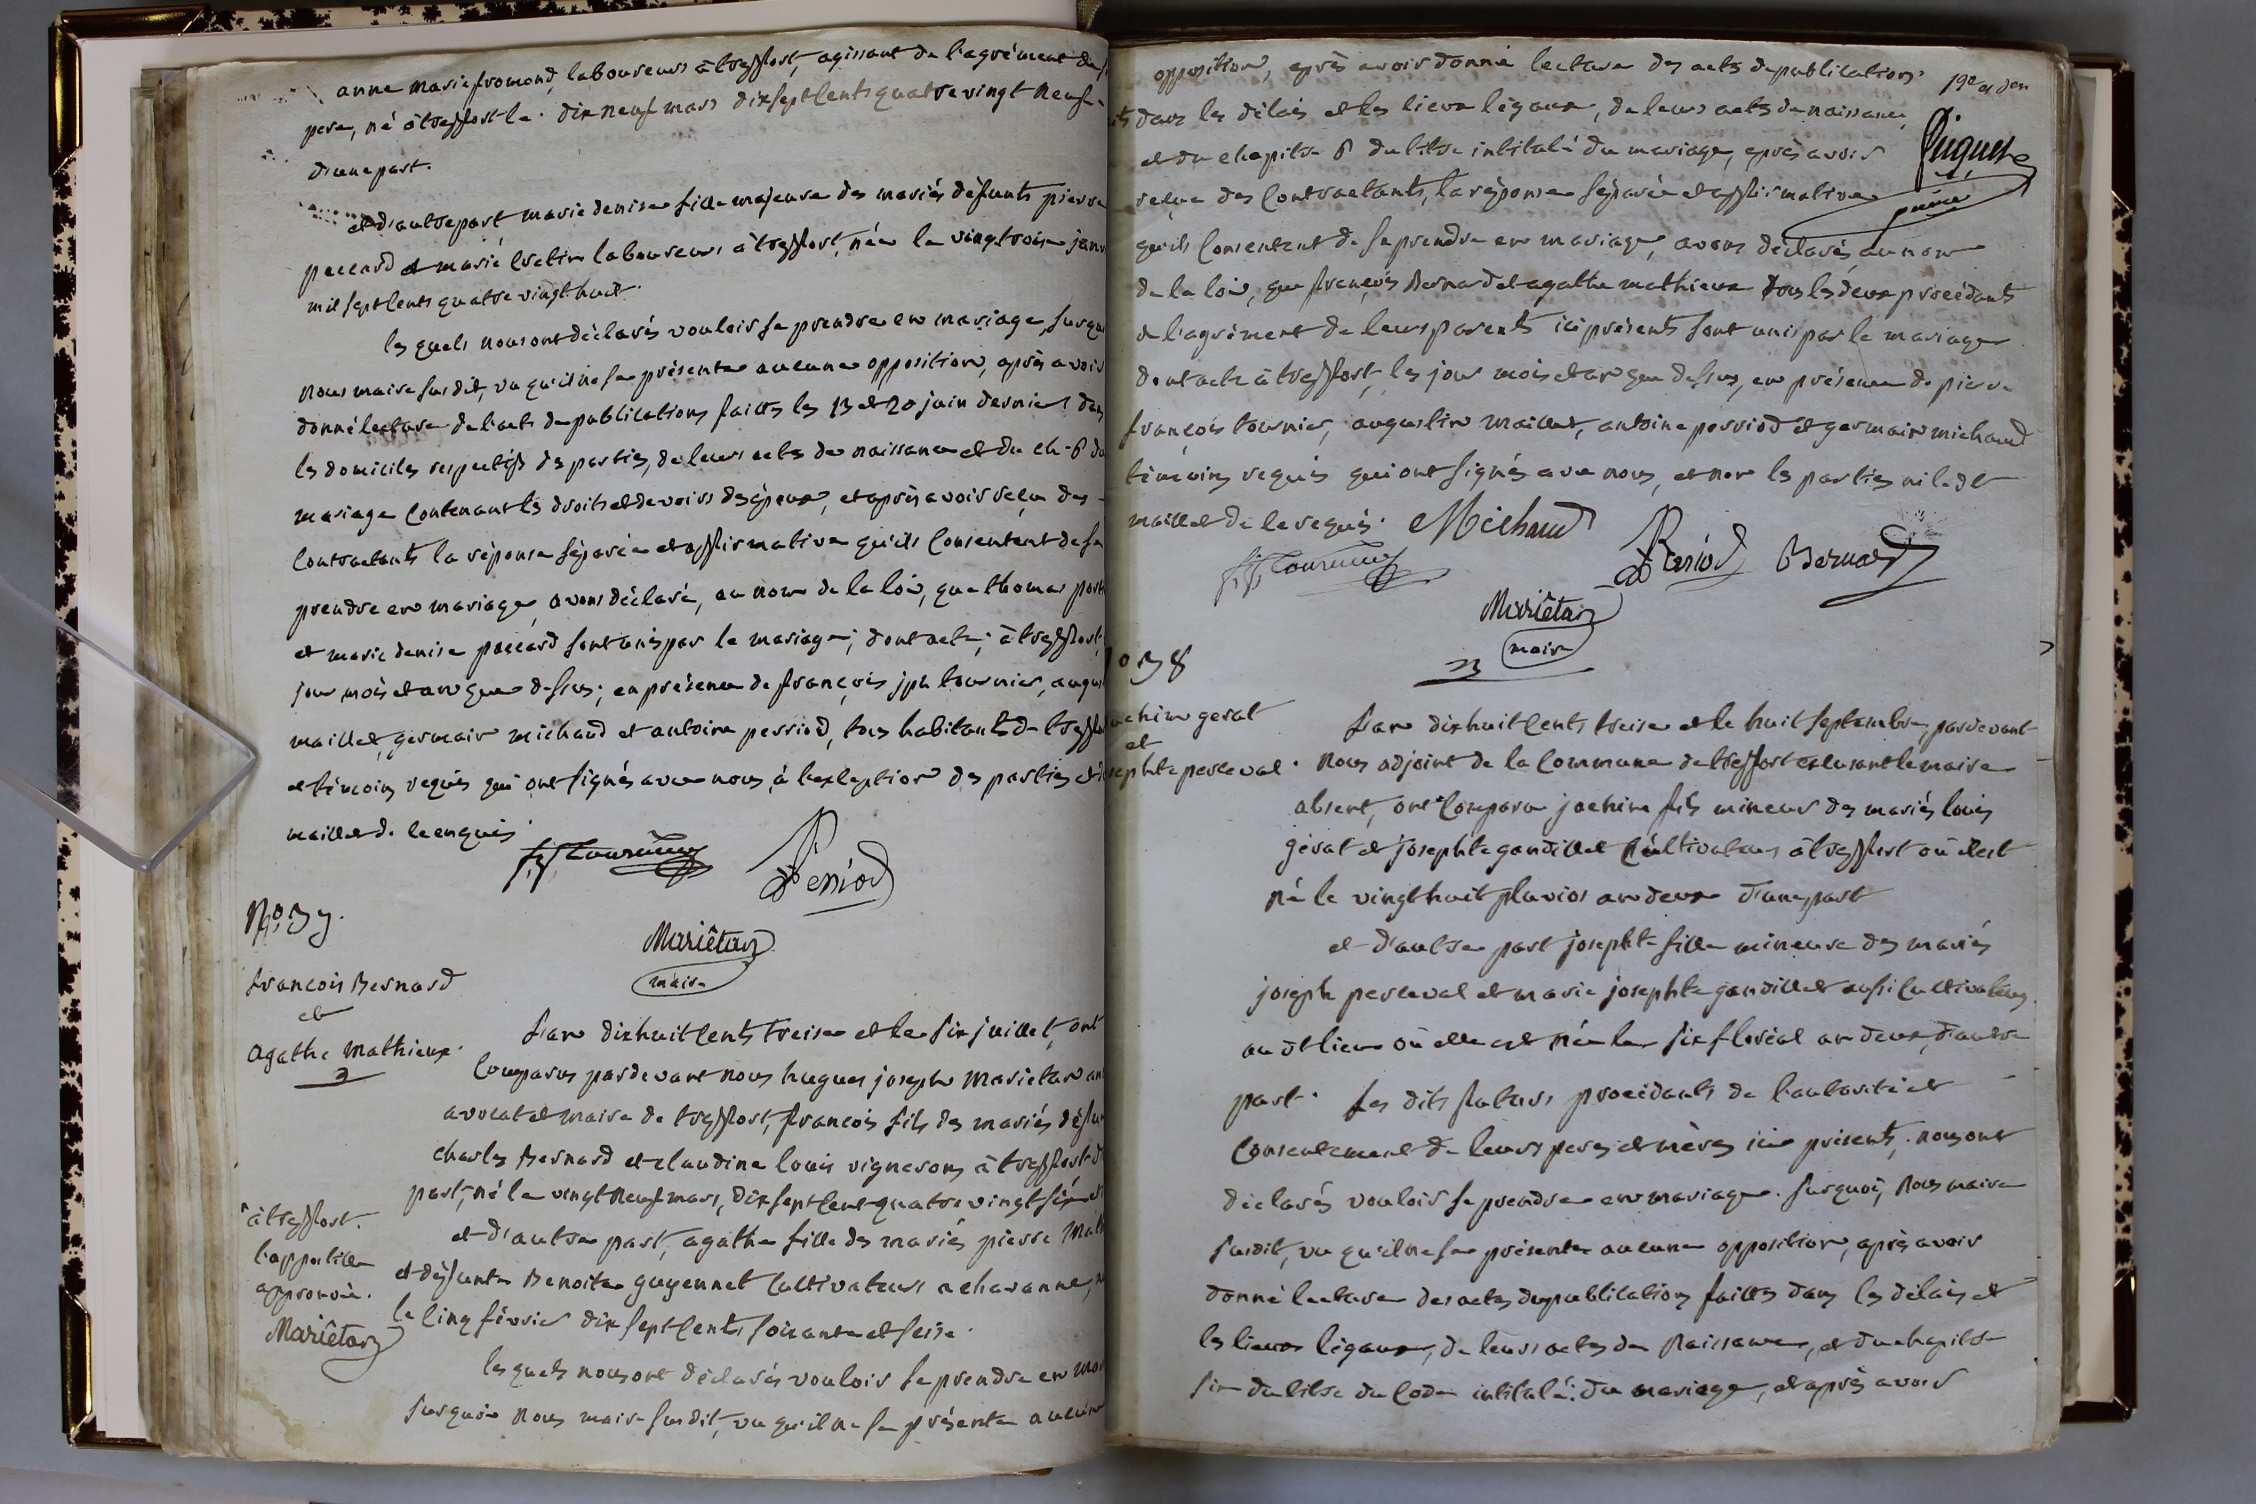 anne marie fromond, laboureurs à treffort, agissant de l'agrément de
pere, né à treffort le dix neuf mars dix sept cents quatre vingt neuf
d'une part.
et d'autre part marie denise fille majeure des mariés défunts pierre
paccard et marie laboureurs à treffort, née le vingt trois janv
mil sept cents quatre vingt huit.
les quels nous ont déclarés vouloir se prendre en mariage, sur quoi
nous maire susdit, vu qu'il ne se présente aucune opposition, après avoir
donné lecture de l'acte de publications faittes les 13 et 20 juin dernier dans
les domiciles respectifs des parties, de leurs actes de naissance et du ch. 6 du
mariage contenant les droits et devoirs des époux, et après avoir reçu des
contractants la réponse séparée et affirmative qu'ils consentent de se
prendre en mariage, avons déclaré, au nom de la loi, que thomas
et marie denise paccard sont unis par le mariage; dont acte; à treffort,
jour mois et an que dessus; en présence de françois jph tournier, augus
maillet, germain michaud et antoine perriod, tous habitants de treffort
et témoins requis qui ont signés avec nous, à l'exception des parties et d
maillet de ce enquis.
f. j. Tournier
Perriod
Mariétan
maire
No. 37.
françois Bernard
et
agathe mathieux.
L'an dix huit cents treise et le six juillet, ont
comparus pardevant nous hugues joseph Marietan an
avocat et maire de treffort, françois fils des mariés défun
charles Bernard et claudine louis vignerons à treffort d
part, né le vingt neuf mars, dix sept cent quatre vingt six
et d'autre part, agathe fille des mariés pierre Math
et défunte Benoite guyennet cultivateurs a chavanne, n
le cinq février dix sept cents soixante et seise.
à treffort.
l'appostille
approuvée.
Mariétan
les quels nous ont déclarés vouloir se prendre en mar
sur quoi nous maire susdit, vu qu'il ne se présente aucune
opposition, après avoir donné lecture des actes de publications
19e et den
Puguet
dans les délais et les lieux légaux, de leurs actes de naissance,
et du chapitre 6 du titre intitulé du mariage, après avoir
reçue des contractants, la réponse séparée et affirmative
qu'ils consentent de se prendre en mariage, avons déclaré, au nom
de la loi, que françois Bernard et agathe mathieux tous les deux procédants
de l'agrément de leurs parents ici présents sont unis par le mariage
dont acte à treffort, les jour mois et an que dessus, en présence de pierre
françois tournier, augustin maillet, antoine perriod et germain michaud
témoins requis qui ont signés avec nous, et non les parties ni ledt
maillet de ce requis.
Michaud
f. j. Tournier
Perriod
Bernard
Mariétan
maire
o 38
achim gerat
et
sephte perceval.
L'an dix huit cents treise et le huit septembre, pardevant
nous adjoint de la commune de treffort excusant le maire
absent, ont comparu joachim fils mineur des mariés louis
gérat et josephte gandillet cultivateurs à treffort où il est
né le vingt huit pluvios an deux d'une part
et d'autre part josephte fille mineure des mariés
joseph perceval et marie josephte gandillet aussi cultivateurs
au dt lieu où elle est née le six floréal an deux, d'autre
part. Les dits futurs procédants de l'autorité et
consentement de leurs peres et mères ici présents, nous ont
déclarés vouloir se prendre en mariage. sur quoi, nous maire
susdit, vu qu'il ne se présente aucune opposition, après avoir
donné lecture des actes de publications faittes dans les délais et
les lieux légaux, de leurs actes de naissance, et du chapitre
six du titre du code intitulé: du mariage, et après avoir